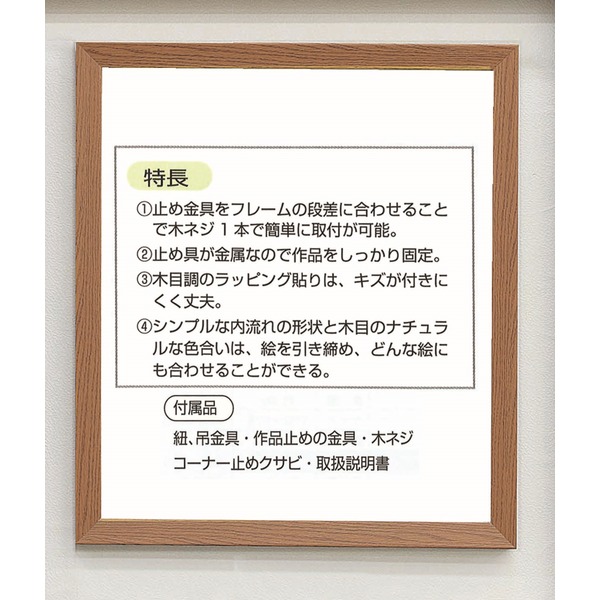 特長
①止め金具をフレームの段差に合わせること
で木ネジ1本で簡単に取付が可能。
②止め具が金属なので作品をしっかり固定。
③木目調のラッピング貼りは、キズが付きに
くく丈夫。
④シンプルな内流れの形状と木目のナチュラ
ルな色合いは、絵を引き締め、どんな絵に
も合わせることができる。
付属品
紐、吊金具・作品止めの金具・木ネジ
コーナー止めクサビ・取扱説明書